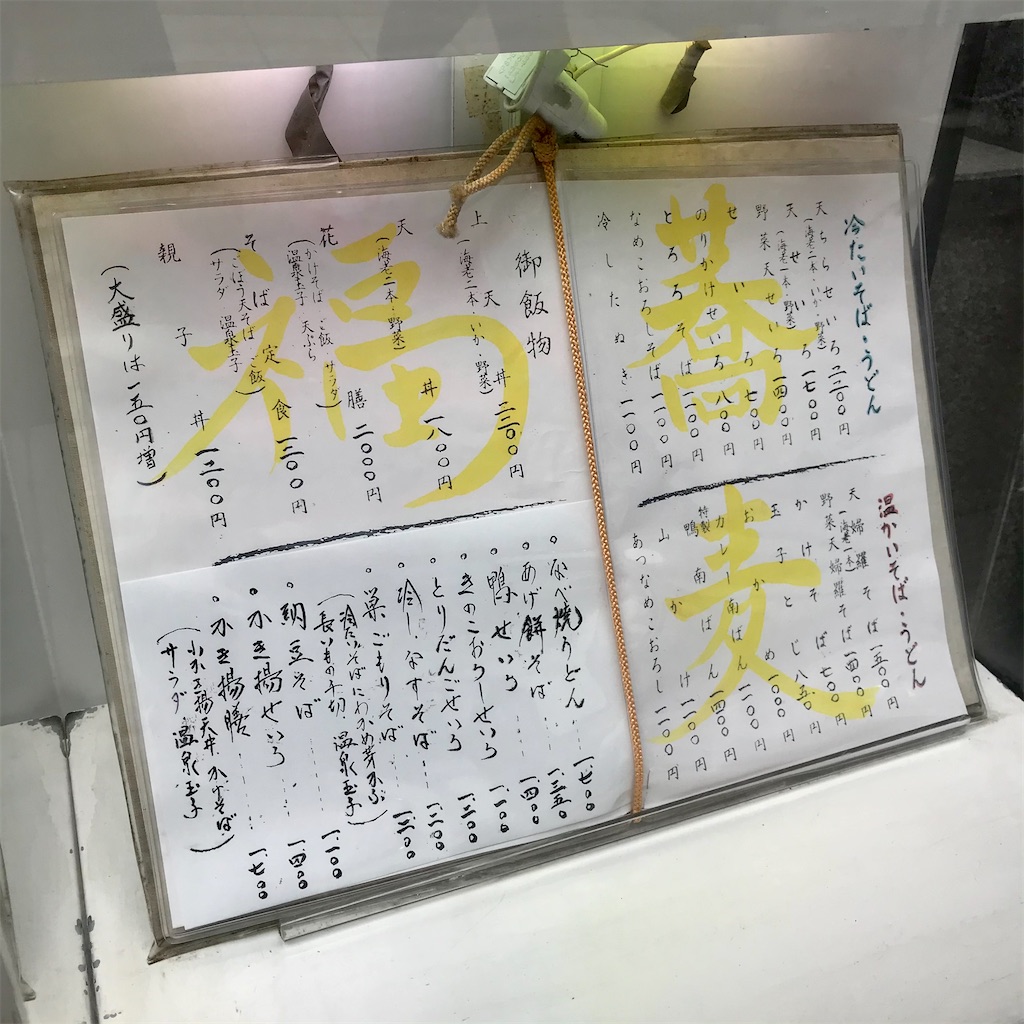 蕎
麦
福
冷たいそば・うどん
天ちらせいろ 二二〇〇円
(海老二本・いか・野菜)
天せいろ 一七〇〇円
(海老一本・野菜)
野菜天せいろ 一四〇〇円
せいろ 七〇〇円
のりかけせいろ 八〇〇円
とろろそば 一一〇〇円
なめこおろしそば 一一〇〇円
冷したぬき 一一〇〇円
温かいそば・うどん
天婦羅そば 一五〇〇円
(海老一本)
野菜天婦羅そば 一四〇〇円
かけそば 七〇〇円
玉子とじ 八五〇円
おかめ 一一〇〇円
カレー南ばん 一一〇〇円
特製鴨南ばん 一四〇〇円
山かけ 一一〇〇円
あつなめこおろし 一一〇〇円
御飯物
上天丼 二三〇〇円
(海老二本・いか・野菜)
天丼 一八〇〇円
(海老二本・野菜)
花膳 二〇〇〇円
(かけそば ご飯・サラダ
温泉玉子 天ぷら)
そば定食 一三〇〇円
(ごぼう天そば ご飯
サラダ 温泉玉子)
親子丼 一二〇〇円
(大盛りは一五〇円増)
なべ焼うどん 一.七〇〇
あげ餅そば 一.三五〇
鴨せいろ 一.四〇〇
きのこおろしせいろ 一.一〇〇
とりだんごせいろ 一.三〇〇
冷しなすそば 一.二〇〇
巣ごもりそば 一.二〇〇
(冷たいそばにわかめ芽かぶ
長いもの千切 温泉玉子)
納豆そば 一.一〇〇
かき揚せいろ 一.四〇〇
かき揚膳 一.七〇〇
(小かき揚天丼 かけそば
サラダ 温泉玉子)